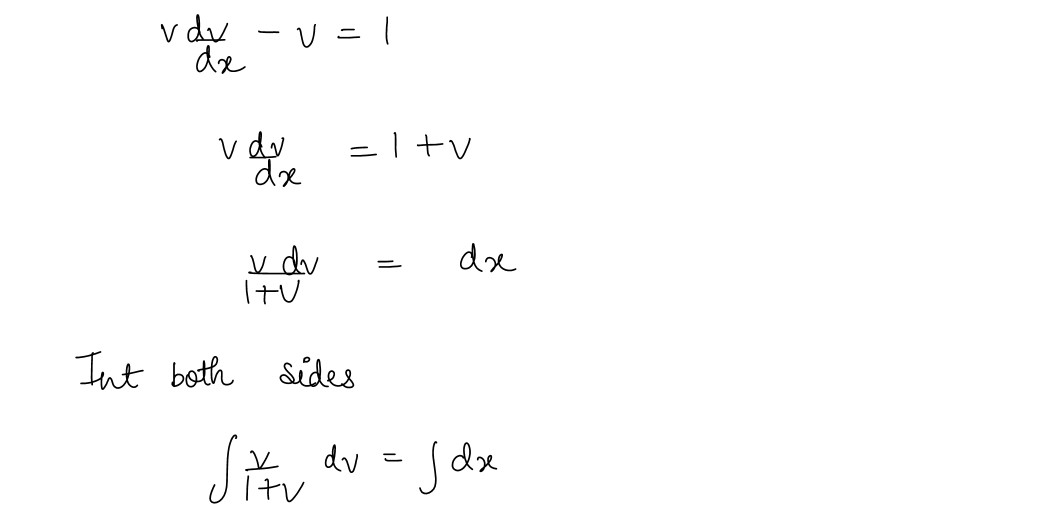 v dv/dx - v = 1
v dv/dx = 1 + v
v dv/1+v = dx
Int both sides
∫ v/1+v dv = ∫ dx